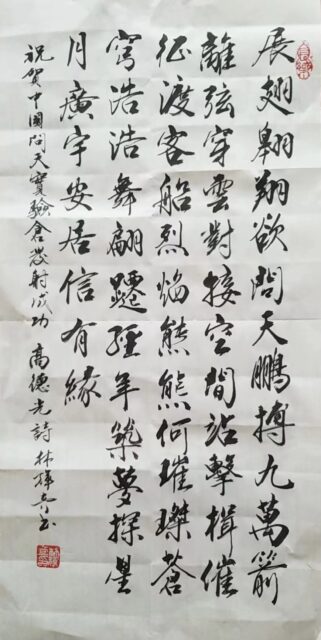 展翅翱翔欲問天鵬搏九萬箭
離弦穿雲對接空間站擊楫催
征渡客船烈焰熊熊何璀璨蒼
穹浩浩舞翩躚經年築夢探星
月廣宇安居信有緣
祝贺中國問天實驗倉發射成功 高德光詩 林